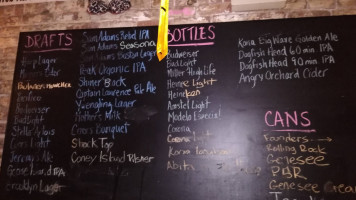 DRAFTS
Hop Lager
Budweiser
Bud Light
Stella Artois
Coors Light
Brooklyn Lager
Sam Adams Rebel IPA
Sam Adams Seasonal
Sam Adams Boston Lager
Peak Organic IPA
Shiner Bock
Captain Lawrence Pale Ale
Yuengling Lager
Mother's Milk
Coors Banquet
Shock Top
Coney Island Pilsner
BOTTLES
Budweiser
Bud Light
Miller High Life
Heineken Light
Heineken
Amstel Light
Modelo Especial
Corona
Kona Big Wave Golden Ale
Dogfish Head 60 min IPA
Dogfish Head 90 min IPA
Angry Orchard Cider
CANS
Founders
Rolling Rock
Genesee
PBR
Genesee Cream